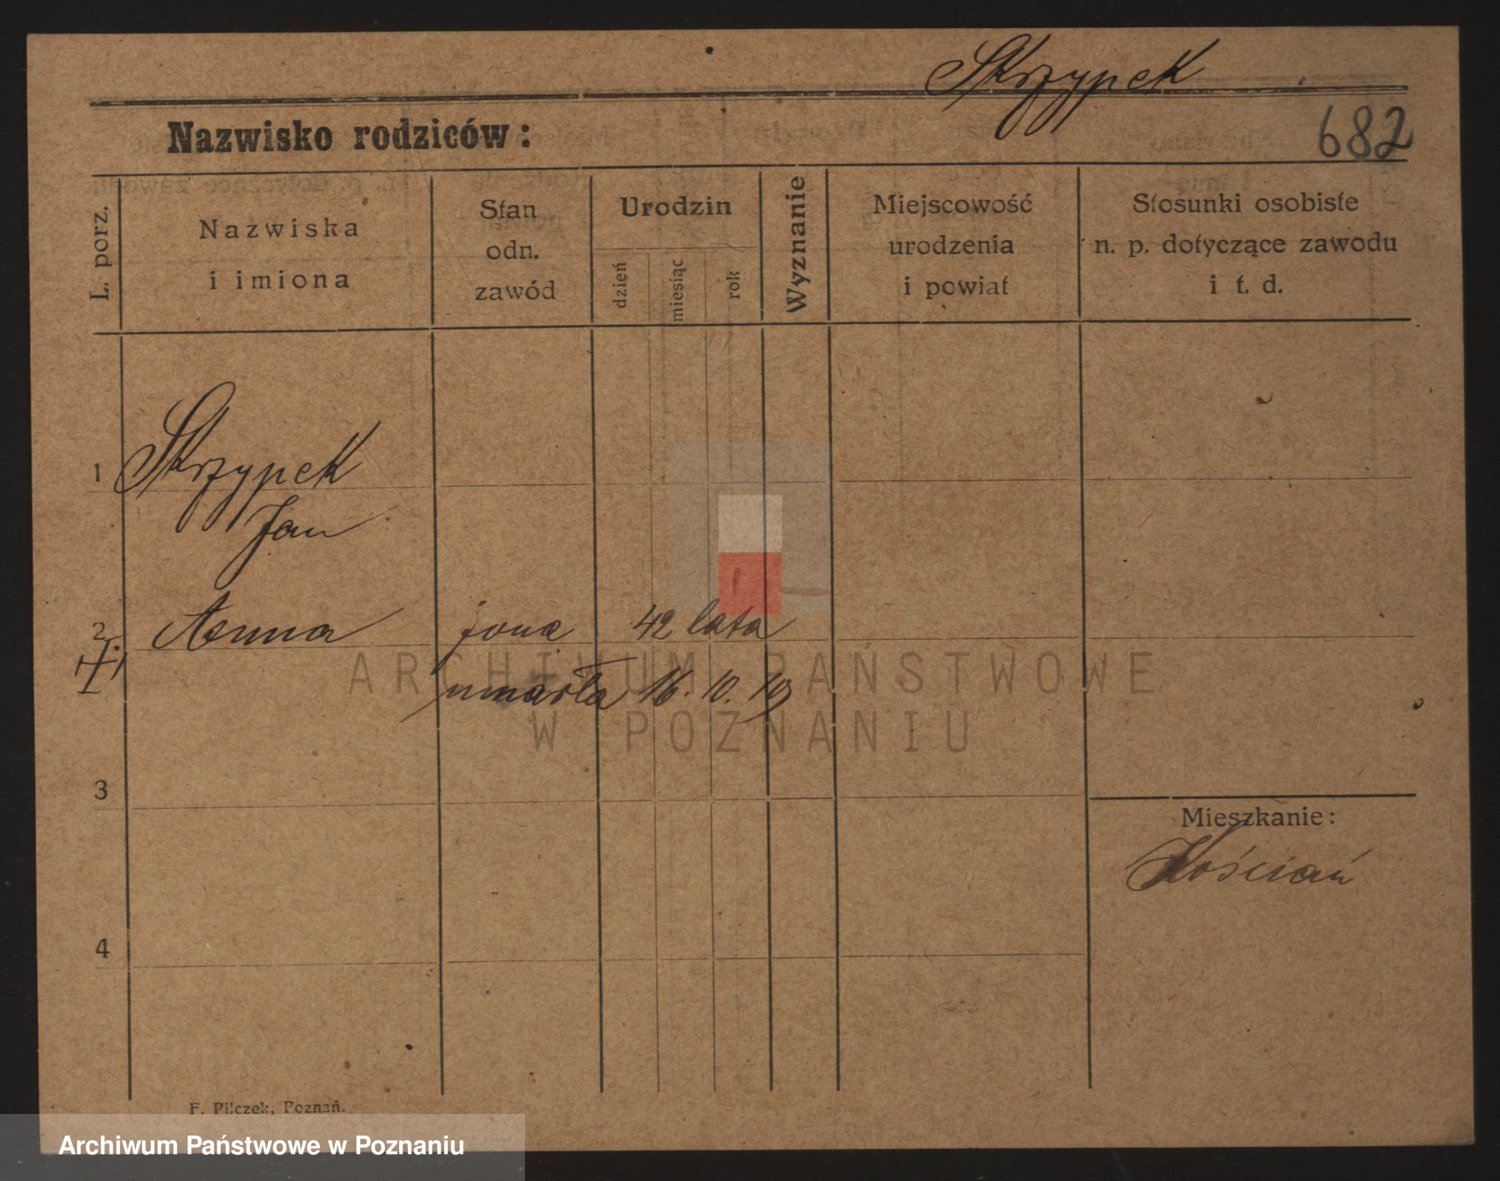 Skrzypek
Nazwisko rodziców:
682
L. porz.
Nazwiska
i imiona
Stan
odn.
zawód
Urodzin
dzień
miesiąc
rok
Wyznanie
Miejscowość
urodzenia
i powiat
Stosunki osobiste
n. p. dotyczące zawodu
i t. d.
1 Skrzypek
Jan
2 Anna żona 42 lata
umarła 16. 10. 19
ARCHIWUM PAŃSTWOWE
W POZNANIU
3
Mieszkanie:
Kościań
4
F. Pilczek, Poznań.
Archiwum Państwowe w Poznaniu